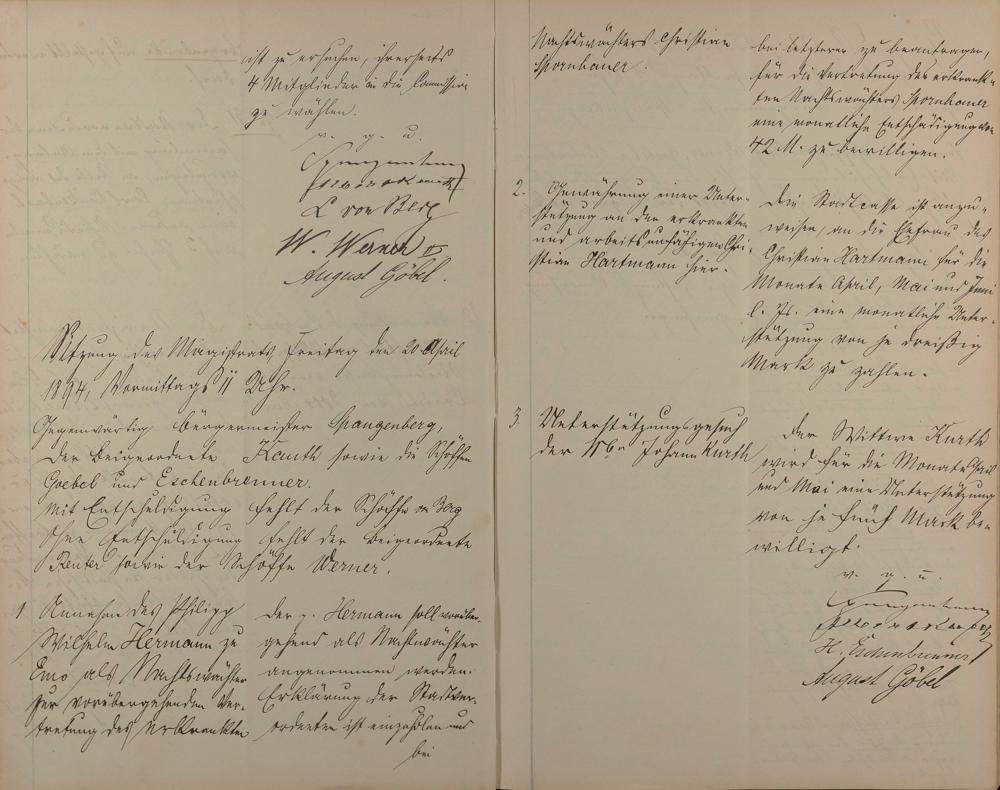 ist zu ersuchen, ihrerseits
4 Mitglieder in die Commission
zu wählen.
v. g. u.
Spangenberg
L von Berg
W. Werner
August Göbel.
Sitzung des Magistrats, Freitag den 20 April
1894, Vormittags 11 Uhr.
Gegenwärtig Bürgermeister Spangenberg,
der Beigeordnete Kauth sowie die Schöffen
Goebel und Eschenbrenner.
Mit Entschuldigung fehlt der Schöffe von Berg
Ohne Entschuldigung fehlt der Beigeordnete
Reuter sowie der Schöffe Werner.
1. Annahme des Philipp
Wilhelm Hermann zu
Ems als Nachtswächter
zur vorübergehenden Ver-
tretung des erkrankten
Der p. Hermann soll vorüber-
gehend als Nachtwächter
angenommen werden.
Erklärung der Stadtver-
ordneten ist einzuholen und
bei
Nachtswächters Christian
Spornhauer.
bei letzterer zu beantragen,
für die Vertretung des erkrank-
ten Nachtswächters Spornhauer
eine monatliche Entschädigung von
42 M. zu bewilligen.
2. Gewährung einer Unter-
stützung an den erkrankten
und arbeitsunfähigen Chri-
stian Hartmann hier.
Die Stadtcasse ist anzu-
weisen, an die Ehefrau des
Christian Hartmann für die
Monate April, Mai und Juni
l. Js. eine monatliche Unter-
stützung von je dreißig
Mark zu zahlen.
3. Unterstützungsgesuch
der Wbe Johann Kurth
Der Wittwe Kurth
wird für die Monate April
und Mai eine Unterstützung
von je fünf Mark be-
willigt.
v. g. u.
Spangenberg
H. Eschenbrenner
August Göbel